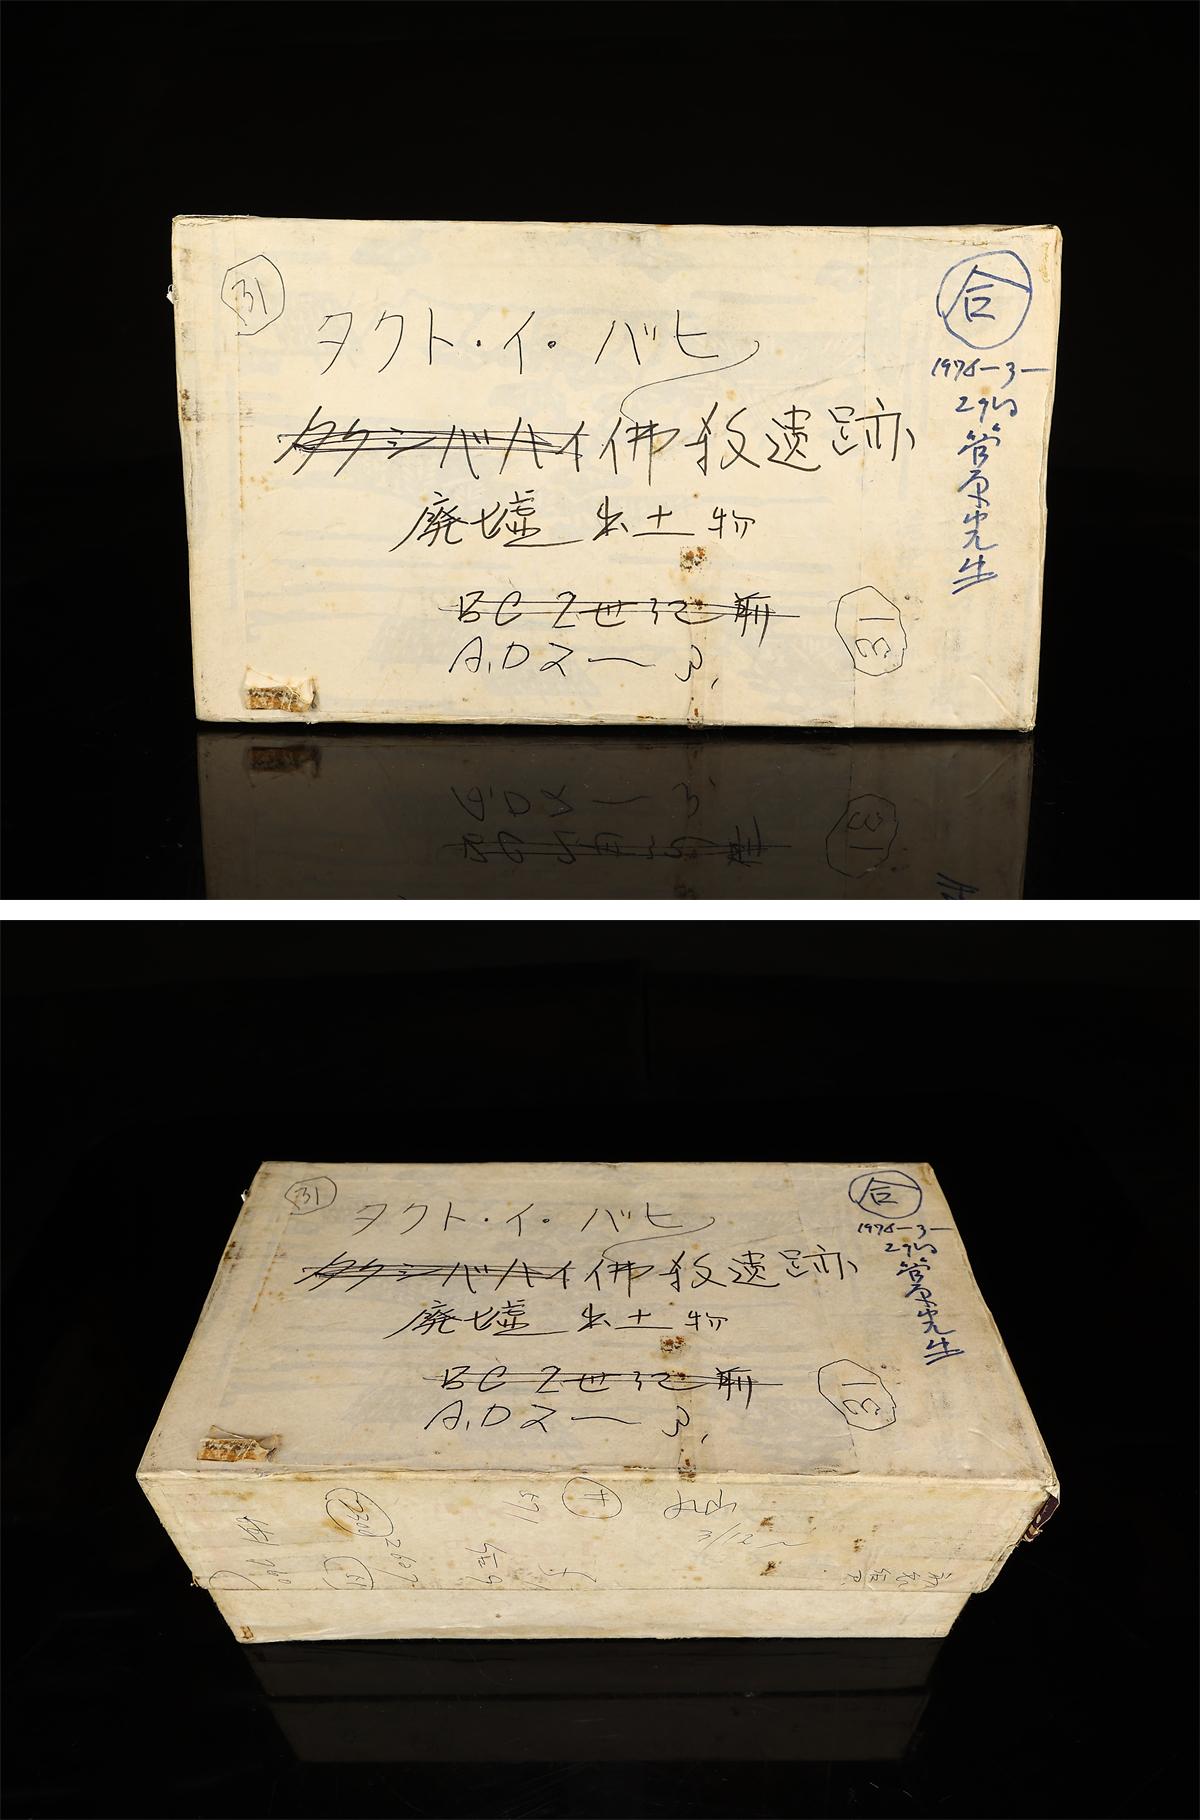 31
タクト・イ・バヒ
タクシバハイ佛殺遺跡
廃墟 出土物
BC 2世紀前
A.D 2〜3.
31
合
1976-3-
29日
菅原先生
31
タクト・イ・バヒ
タクシバハイ佛殺遺跡
廃墟 出土物
BC 2世紀前
A.D 2〜3.
31
合
1976-3-
29日
菅原先生
丸山